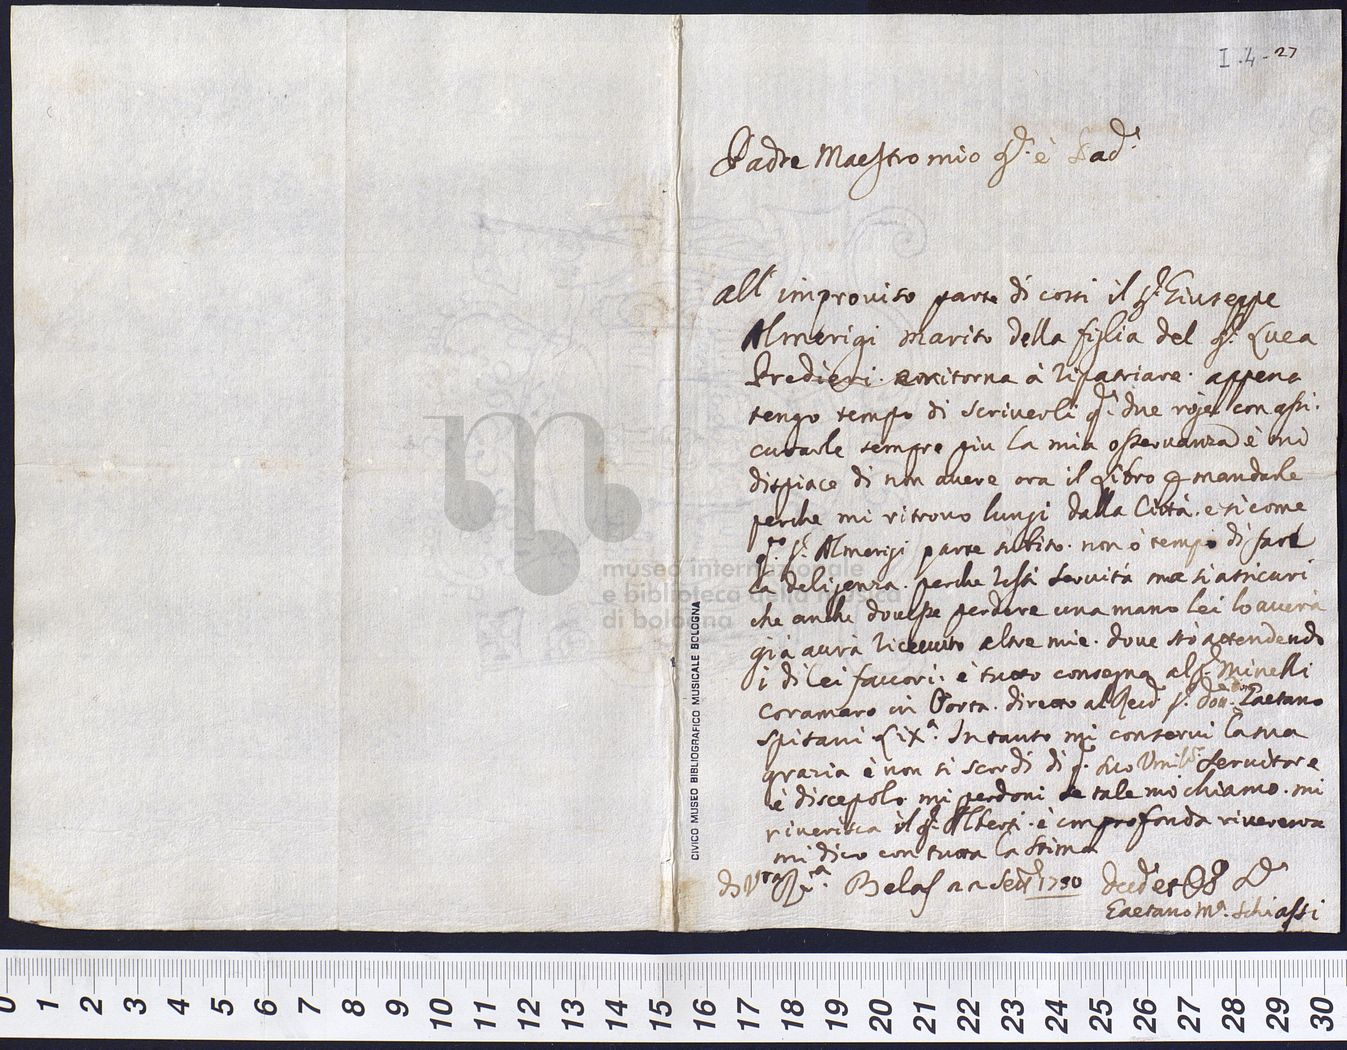 I.4-27
Padre Maestro mio
All' improviso parte di costi il Sr. Giuseppe
Almerigi marito della figlia del Sr. Luca
Predieri. ritorna à ripatriare. appena
tengo tempo di scriverli due con assi.
curarle sempre piu la mia osservanza è mi
dispiace di non avere ora il Libro mandarle
perche mi ritrovo lungi dalla Città. e si come
Almerigi parte subito. non ò tempo di farle
la deligenza. perche servità ma si asicuri
che anche dovesse perdere una mano lei lo averà
già avrà riceuuto altre mie. dove stò attendendo
i di lei favori. è tutto consegna al Sr. Minelli
Coramaro in directo al Sr. Don Gaetano
Spitani Lixa. Intanto mi conservi la sua
grazia è non si scordi di suo Servitore
è discepolo. mi perdoni se tale mi chiamo. mi
riverisca il Sr. Alberti. è profonda riverenza
mi dico con tutta la stima
Di Vra Rza. Belas Setr. 1730
Gaetano Ma. Schiassi
CIVICO MUSEO BIBLIOGRAFICO MUSICALE BOLOGNA
museo internazionale
e biblioteca della musica
di bologna
0 1 2 3 4 5 6 7 8 9 10 11 12 13 14 15 16 17 18 19 20 21 22 23 24 25 26 27 28 29 30